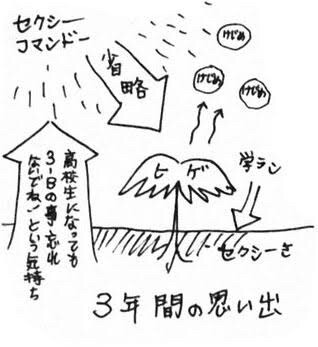 セクシー
コマンドー
省略
けじめ
けじめ
けじめ
ヒゲ
学ラン
セクシーさ
高校生になっても
3-Bの事忘れ
ないでね！という気持ち
3年間の思い出